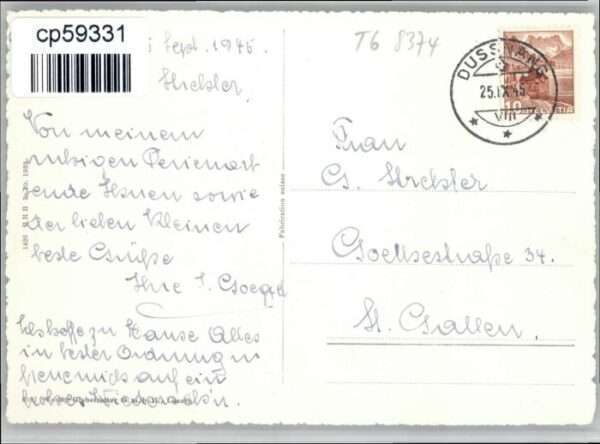 cp59331
Sept. 1945.
T6 8374
Strebler,
DUSSNANG
25.IX.45
VIII
10
Von meinem
ruhigen Ferienort
sende Ihnen sowie
der lieben Kleinen
beste Grüße
Ihre
Ich hoffe zu Hause Alles
in bester Ordnung u
freue mich auf ein
frohes Wiederseh'n.
Fabrication suisse
Frau
G. Strebler
Goethestraße 34.
St. Gallen.